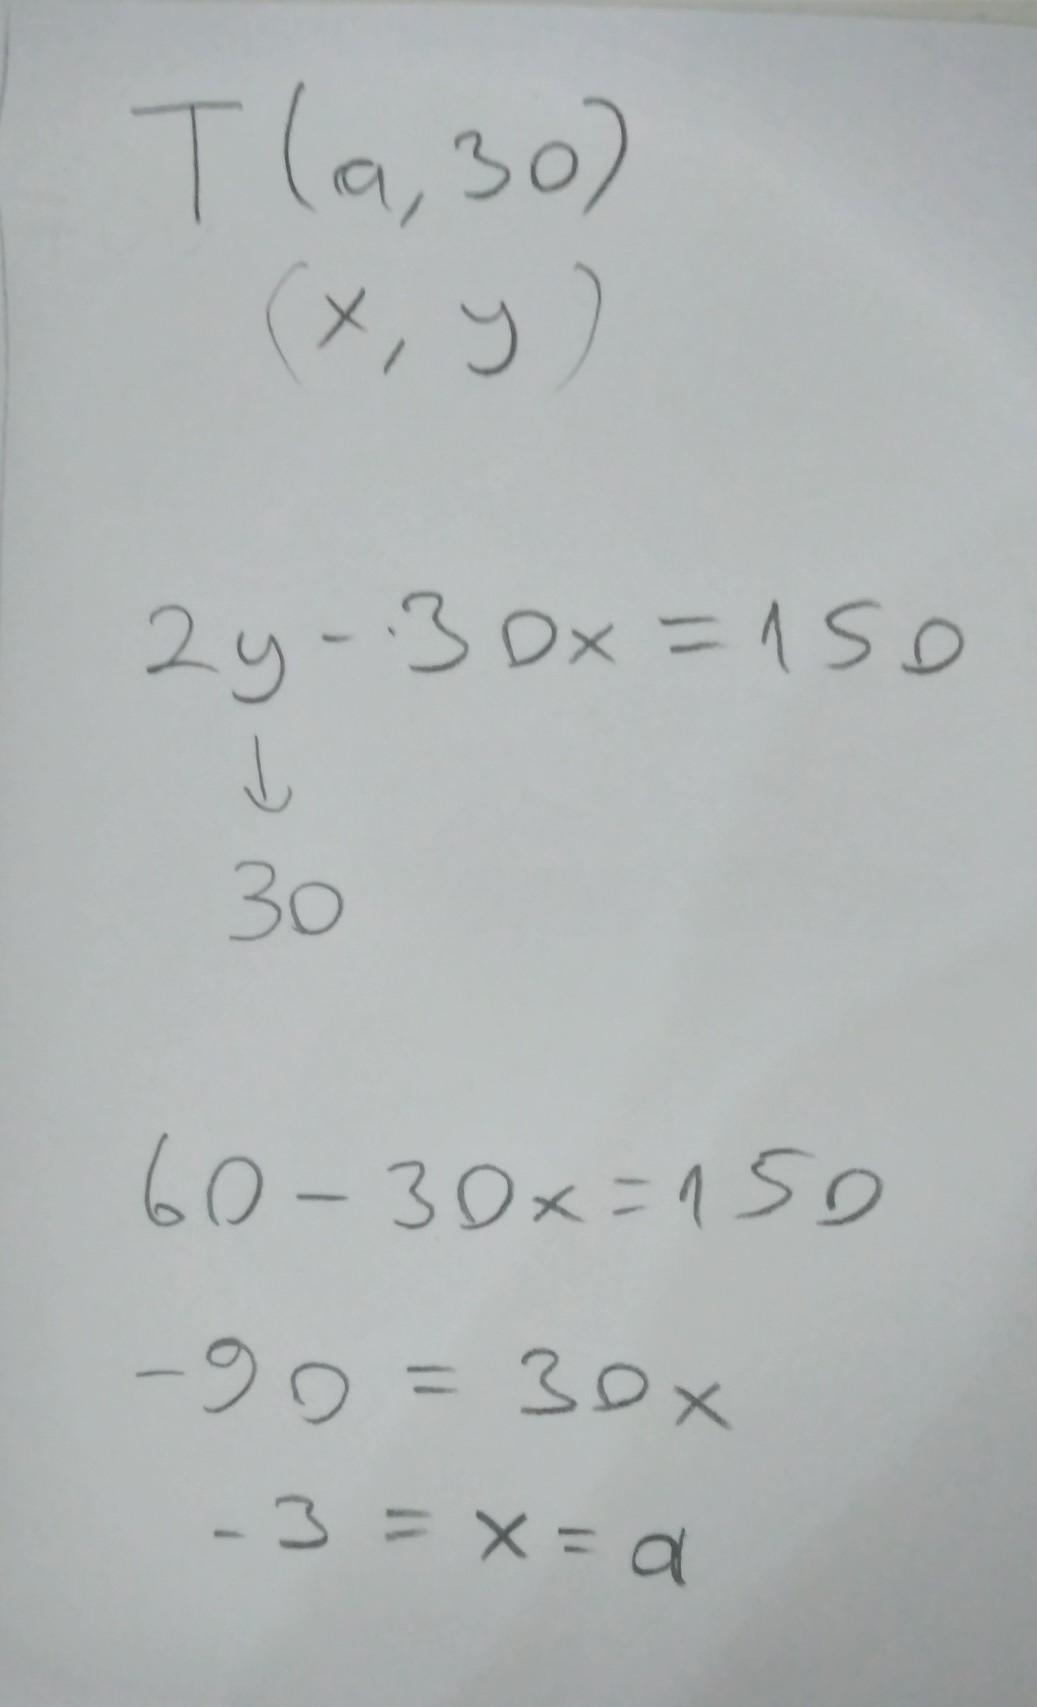 T(a,30)
(x, y)
2y-30x=150
↓
30
60-30x=150
-90=30x
-3=x=a